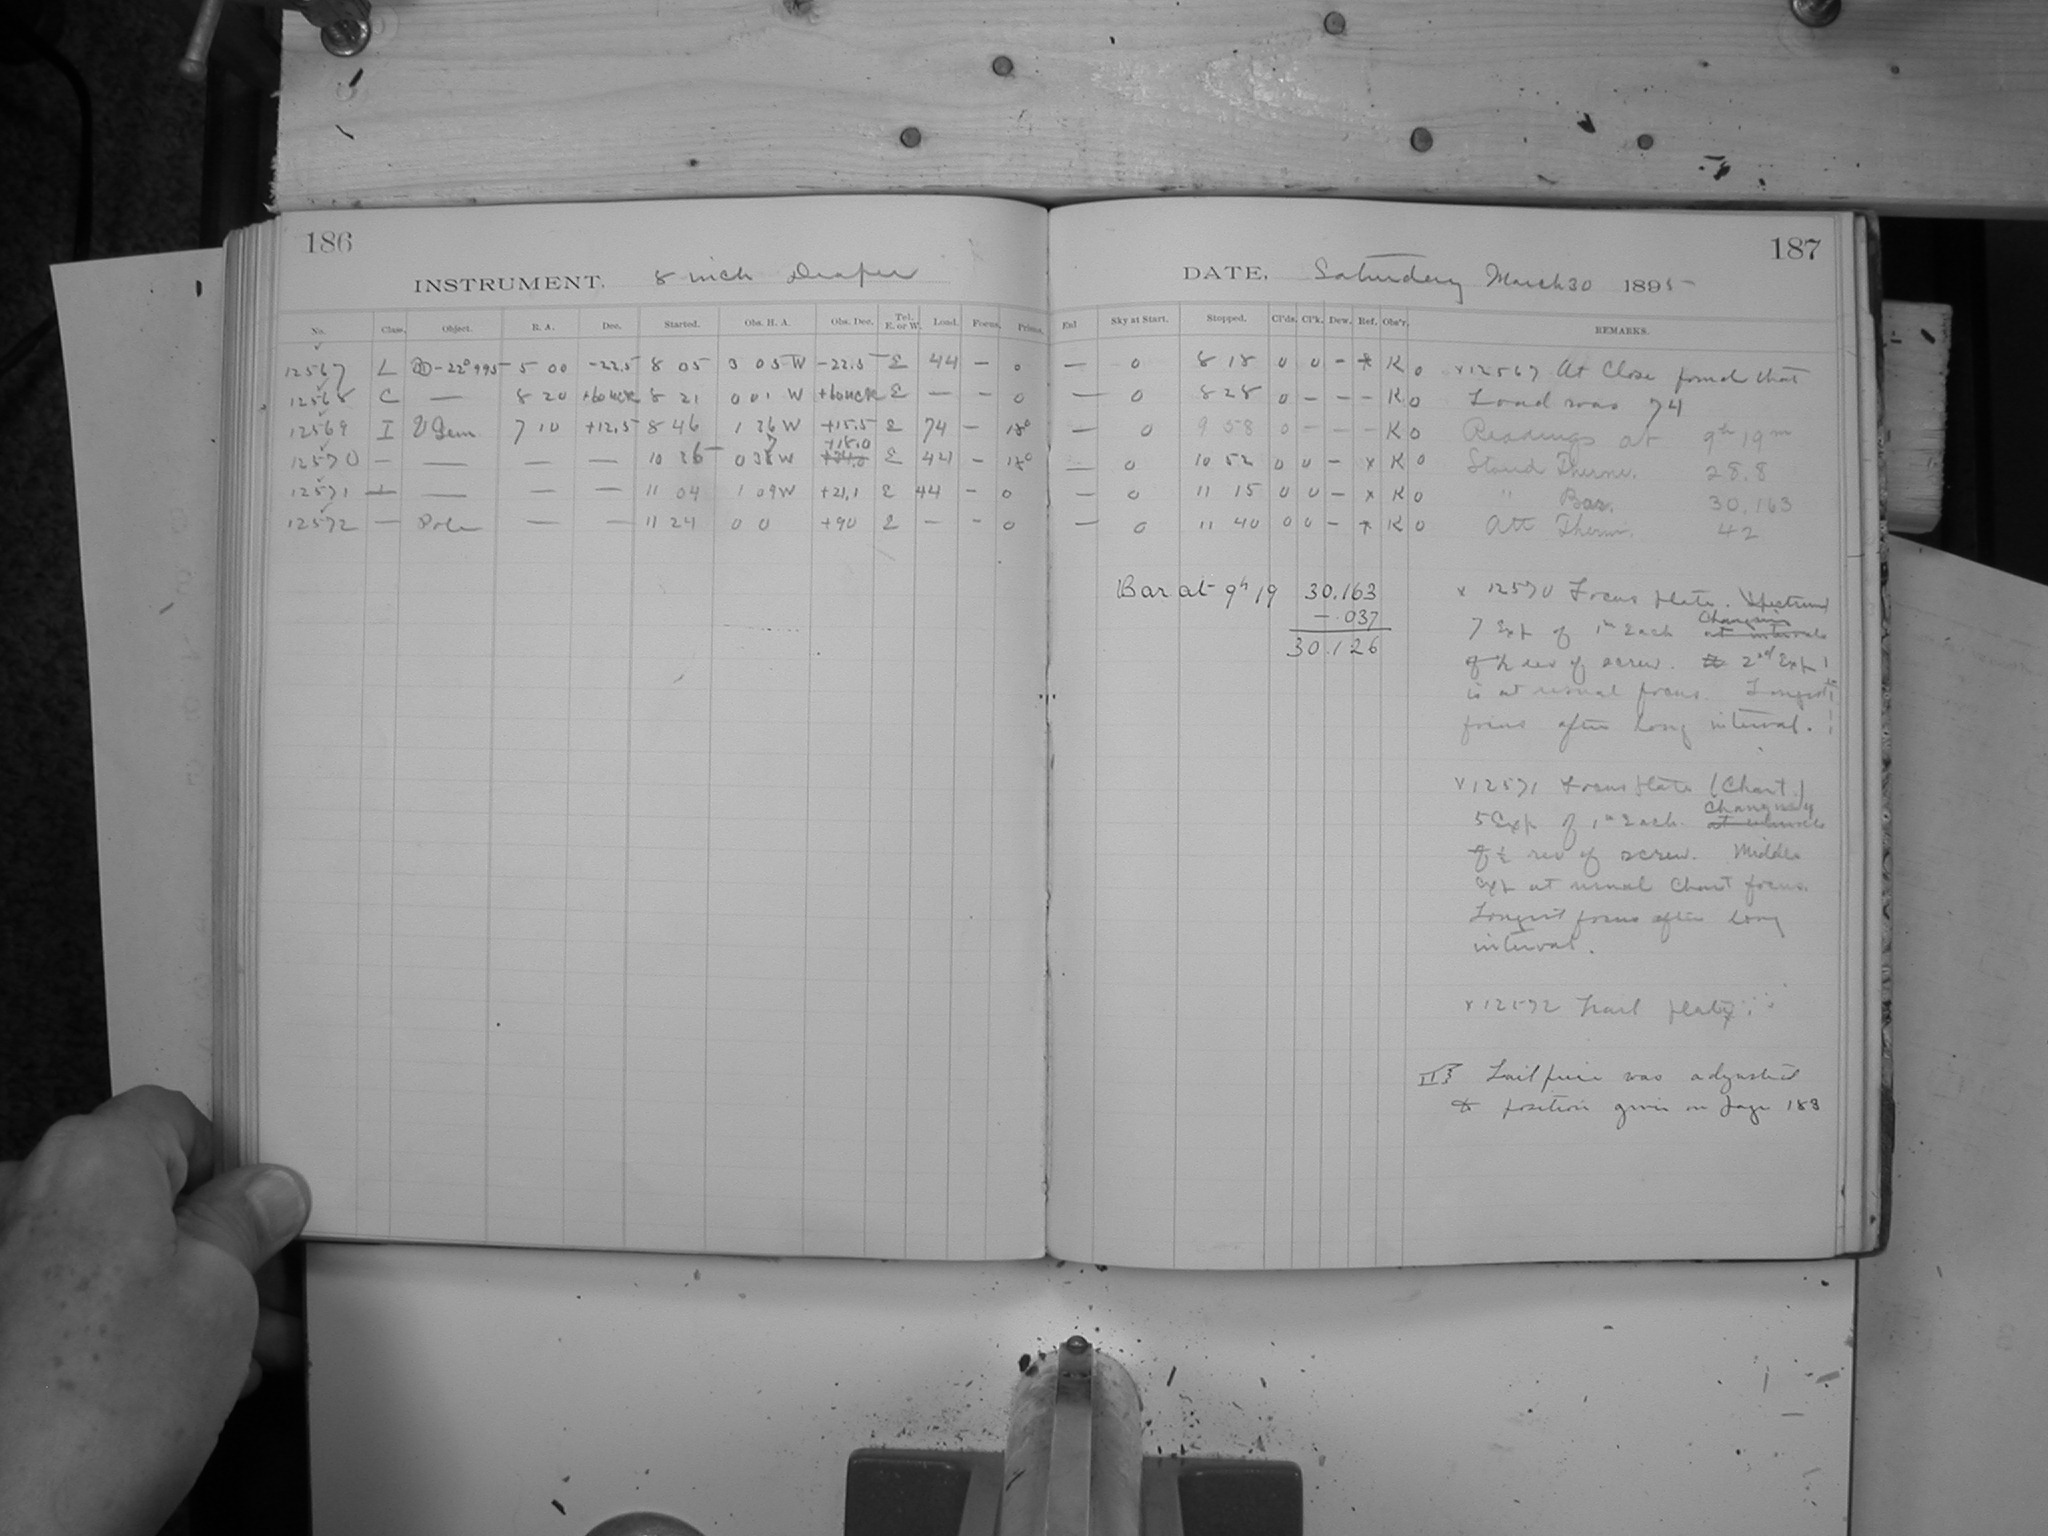 186
INSTRUMENT. 8 inch Draper
No. Class. Object. R. A. Dec. Started. Obs. H. A. Obs. Dec. Tel. E. or W. Load. Focus. Prisms.
12567 L -22° 995 5 00 -22.5 8 05 3 05 W -22.5 E 44 – 0
12568 C — 8 20 8 21 0 01 W E — – 0
12569 I 7 10 +12.5 8 46 1 36 W +15.5 E 74 –
12570 – — — — 10 26 +18.0 E 44 –
12571 — — — 11 04 1 09 W +21.1 E 44 – 0
12572 — Pole — — 11 24 0 0 +90 E — – 0
187
DATE, Saturday March 30 1895
Exl Sky at Start. Stopped. Cl'ds. Cl'k. Dew. Ref. Obs'r. REMARKS.
— 0 8 18 0 0 – * K 0
— 0 8 28 0 – – – K 0
— 0 9 58 0 – – – K 0
— 0 10 52 0 0 – x K 0
— 0 11 15 0 0 – x K 0
— 0 11 40 0 0 – * K 0
Bar at 9h 19 30.163
– .037
30.126
x12567 At Close found that
Load was 74
Readings at 9h 19m
Stand Therm. 28.8
" Bar. 30.163
Att Therm. 42
x 12570 Focus plate. Spectrum
7 Exp of 1m Each Changing
at intervals
of ½ rev of screw. 2nd Exp
is at usual focus. Longest
focus after long interval.
x12571 Focus plate (Chart.)
5 Exp of 1m Each. Changing
at intervals
of ½ rev of screw. Middle
Exp at usual Chart focus.
Longest focus after long
interval.
x12572 Trail plate
Tailpiece was adjusted
position given on page 183